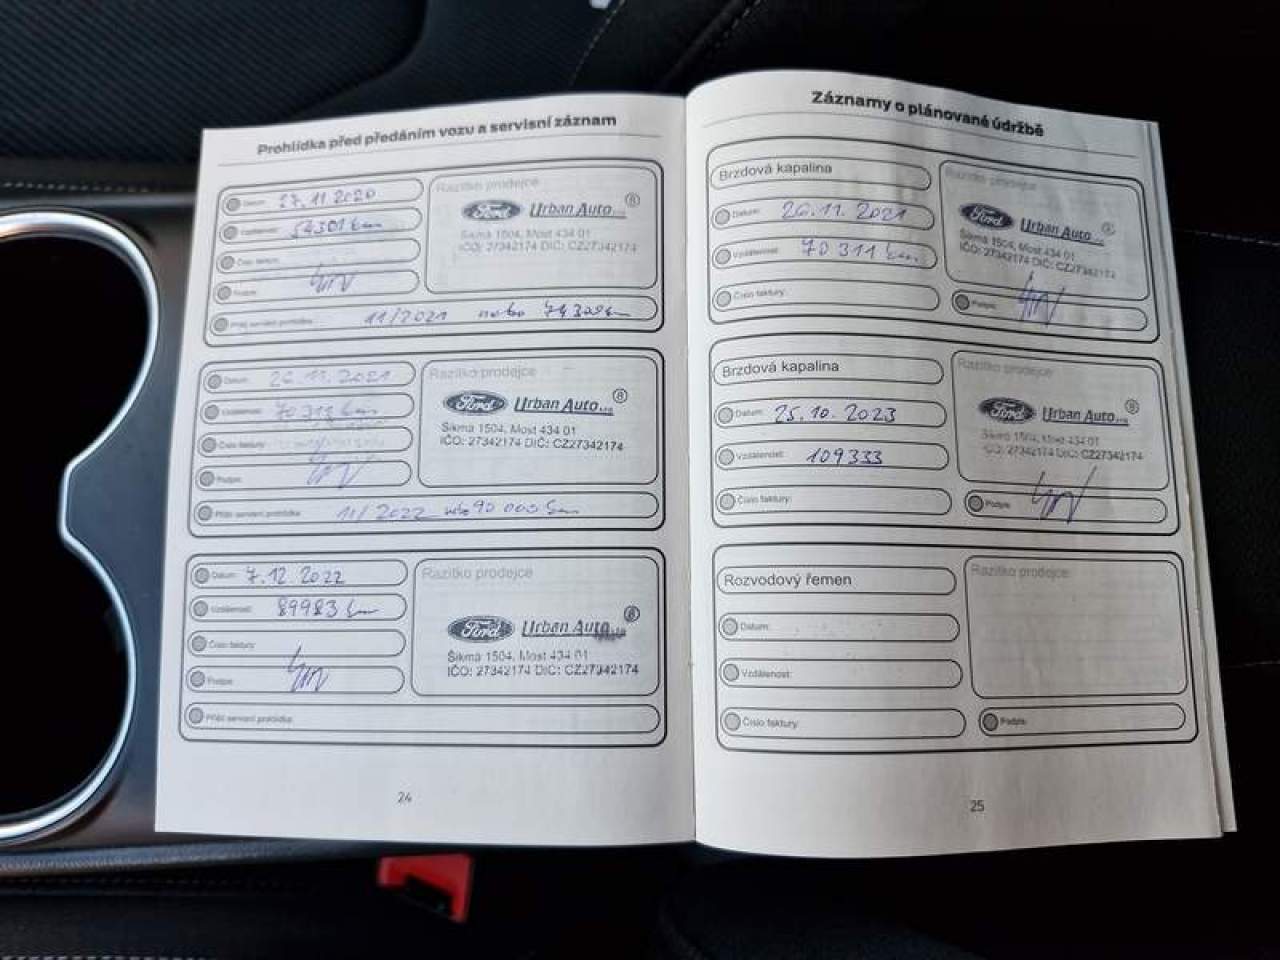 Prohlídka před předáním vozu a servisní záznam
Datum: 27.11.2020
Vzdálenost: 54301 km
Číslo faktury:
Podpis:
Příští servisní prohlídka: 11/2021 nebo 74300 km
Razítko prodejce
Ford Urban Auto s.r.o. 8
Šikmá 1504, Most 434 01
IČO: 27342174 DIČ: CZ27342174
Datum: 26.11.2021
Vzdálenost: 70313 km
Číslo faktury:
Podpis:
Příští servisní prohlídka: 11/2022 nebo 90 000 km
Razítko prodejce
Ford Urban Auto s.r.o. 8
Šikmá 1504, Most 434 01
IČO: 27342174 DIČ: CZ27342174
Datum: 7.12.2022
Vzdálenost: 89983 km
Číslo faktury:
Podpis:
Příští servisní prohlídka:
Razítko prodejce
Ford Urban Auto 8
Šikmá 1504, Most 434 01
IČO: 27342174 DIČ: CZ27342174
24
Záznamy o plánované údržbě
Brzdová kapalina
Datum: 26.11.2021
Vzdálenost: 70311 km
Číslo faktury:
Razítko prodejce
Ford Urban Auto s.r.o.
Šikmá 1504, Most 434 01
IČO: 27342174 DIČ: CZ27342174
Podpis:
Brzdová kapalina
Datum: 25.10.2023
Vzdálenost: 109333
Číslo faktury:
Razítko prodejce
Ford Urban Auto s.r.o. 8
Šikmá 1504, Most 434 01
IČO: 27342174 DIČ: CZ27342174
Podpis:
Rozvodový řemen
Datum:
Vzdálenost:
Číslo faktury:
Razítko prodejce
Podpis:
25